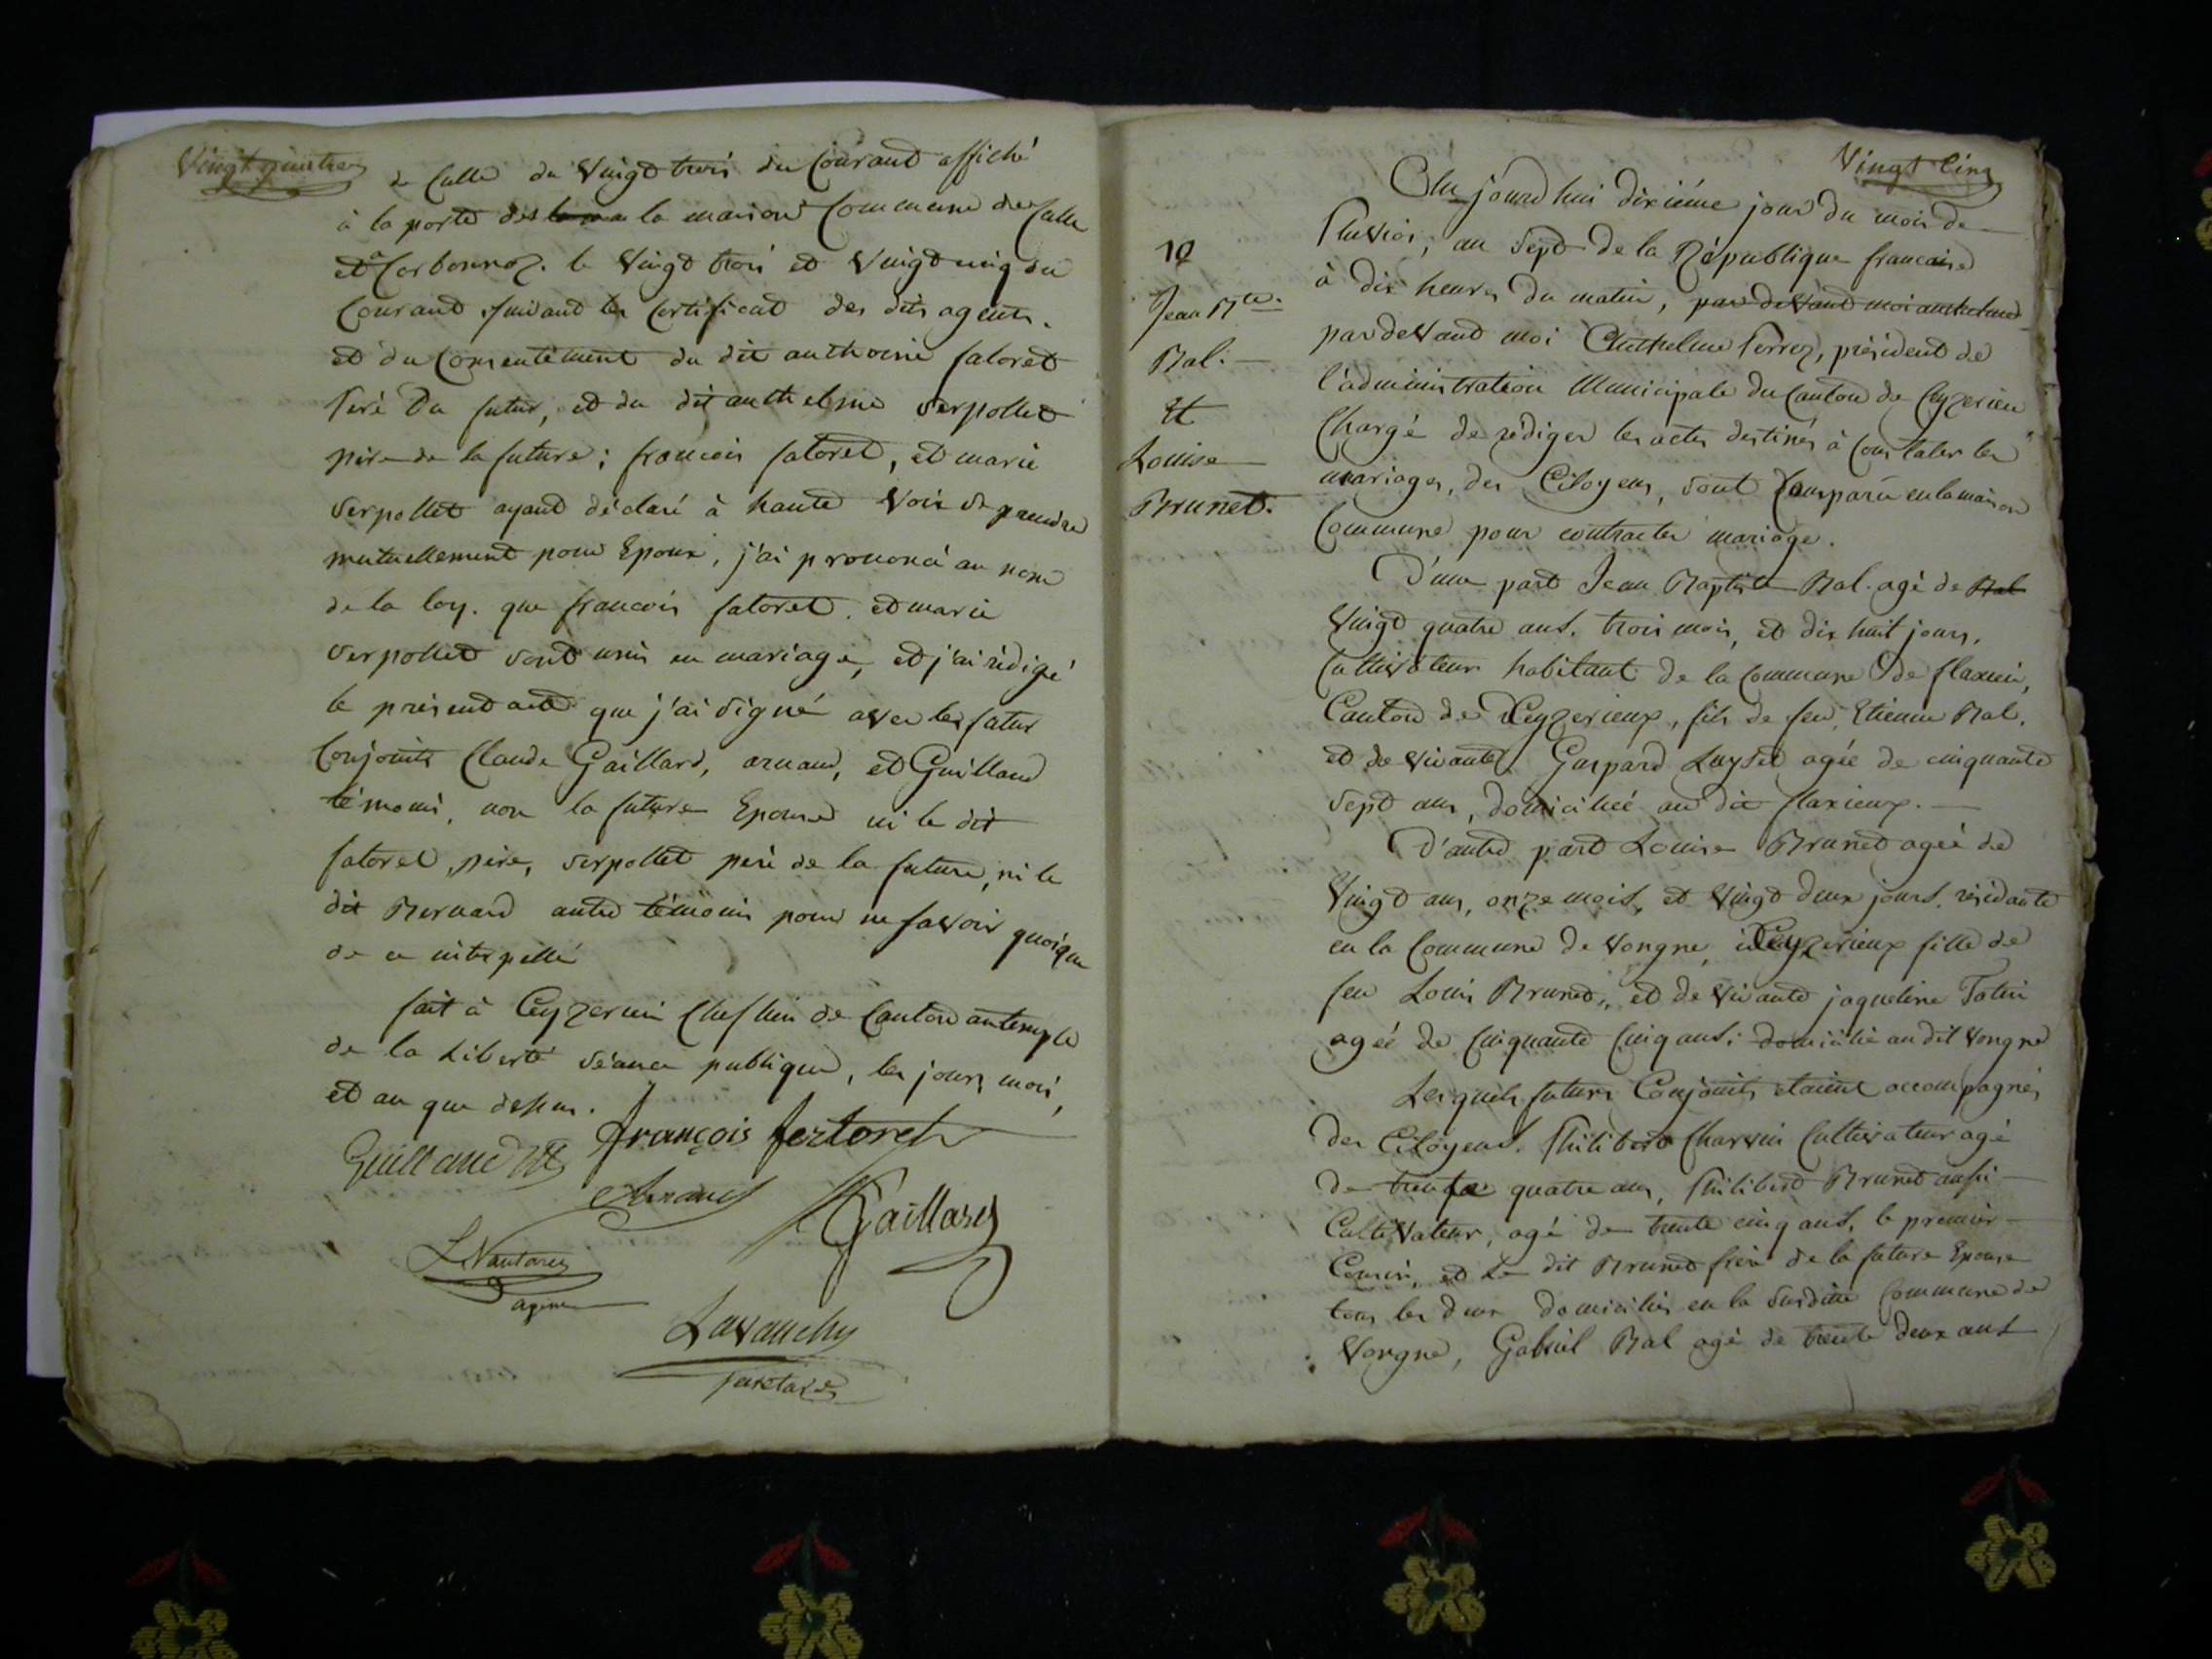 Vingt quatre
de Culle du Vingt trois du Courant affiché
à la porte des la maison Commune de Culle
et à Corbonnoz. le Vingt trois et Vingt cinq du
Courant suivant les Certificat des dits agents.
et du Consentement du dit anthoine fatoret
Père Du futur, et du dit anthelme serpollet
père de la future; francois fatoret, et marie
Serpollet ayant déclaré à haute Voix se prendre
mutuellement pour Epoux, j'ai prononcé au nom
de la loy. que francois fatoret. et marie
serpollet sont unis en mariage, et j'ai rédigé
le présent acte que j'ai signé avec les futur
Conjoints Claude Gaillard, arnaud, et Guilland
témoins, non la future Epouse ni le dit
fatoret, père, serpollet père de la future, ni le
dit Bernard autre témoin pour ne savoir quoique
de ce interpellé
fait à Ceyzerieu Chef lieu de Canton au temple
de la Liberté séance publique, les jours, mois,
et an que dessus.
Guilland
françois fertoret
Arnaud
Gaillard
agent
Lavanchy
Vingt Cinq
10
Jean Bte.
Bal.
et
Louise
Brunet.
Au jourd'hui dixième jour du mois de
Pluviôs, an sept de la République francaise
à dix heures du matin, par devant moi
pardevant moi Anthelme Perroz, président de
l'administration Municipale du Canton de Ceyzerieu
Chargé de rédiger les actes destinés à Constater les
mariages, des Citoyens, sont Comparu en la maison
Commune pour contracter mariage.
D'une part Jean Baptiste Bal. agé de Bal
Vingt quatre ans. trois mois, et dix huit jours.
Cultivateur habitant de la Commune de flaxieu,
Canton de Ceyzerieux, fils de feu Etienne Bal.
et de vivante Gaspard Luyset agée de cinquante
sept ans, domiciliée au dit flaxieux.
D'autre part Louise Brunet agée de
Vingt ans, onze mois, et Vingt deux jours. résidante
en la Commune de Vongne, Ceyzerieux fille de
feu Louis Brunet, et de vivante jaqueline Tatin
agée de Cinquante Cinq ans; domicilié au dit Vongne
Lesquels futurs Conjoints etoient accompagnés
des Citoyens. Philibert Charvin Cultivateur agé
de trente quatre ans, Philibert Brunet aussi
Cultivateur, agé de trente cinq ans, le premier
Cousin, et Le dit Brunet frère de la future Epouse
tous les deux domiciliés en la susditte Commune de
Vongne, Gabriel Bal agé de trente deux ans